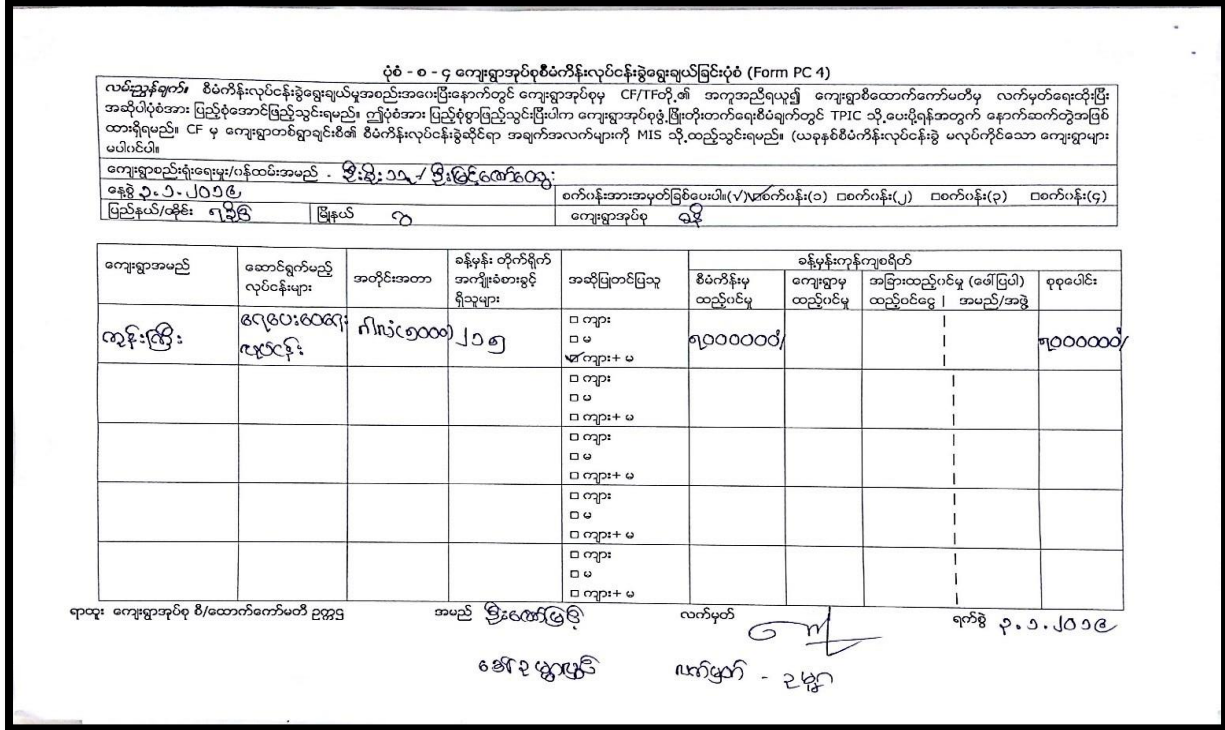 ပုံစံ - စ - ၄ ကျေးရွာအုပ်စုစီမံကိန်းလုပ်ငန်းခွဲရွေးချယ်ခြင်းပုံစံ (Form PC 4)
လမ်းညွှန်ချက်။ စီမံကိန်းလုပ်ငန်းခွဲရွေးချယ်မှုအစည်းအဝေးပြီးနောက်တွင် ကျေးရွာအုပ်စုမှ CF/TFတို့၏ အကူအညီရယူ၍ ကျေးရွာစီထောက်ကော်မတီမှ လက်မှတ်ရေးထိုးပြီး
အဆိုပါပုံစံအား ပြည့်စုံအောင်ဖြည့်သွင်းရမည်။ ဤပုံစံအား ပြည့်စုံစွာဖြည့်သွင်းပြီးပါက ကျေးရွာအုပ်စုဖွံ့ဖြိုးတိုးတက်ရေးစီမံချက်တွင် TPIC သို့ပေးပို့ရန်အတွက် နောက်ဆက်တွဲအဖြစ်
ထားရှိရမည်။ CF မှ ကျေးရွာတစ်ရွာချင်းစီ၏ စီမံကိန်းလုပ်ငန်းခွဲဆိုင်ရာ အချက်အလက်များကို MIS သို့ထည့်သွင်းရမည်။ (ယခုနှစ်စီမံကိန်းလုပ်ငန်းခွဲ မလုပ်ကိုင်သော ကျေးရွာများ
မပါဝင်ပါ။
ကျေးရွာစည်းရုံးရေးမှူး/ဝန်ထမ်းအမည် -
နေ့စွဲ ၃.၁.၂၀၁၉ စက်ဝန်းအားအမှတ်ခြစ်ပေးပါ။(√) စက်ဝန်း(၁) □စက်ဝန်း(၂) □စက်ဝန်း(၃) □စက်ဝန်း(၄)
ပြည်နယ်/တိုင်း ရခိုင် မြို့နယ် ဂွ ကျေးရွာအုပ်စု
ကျေးရွာအမည် ဆောင်ရွက်မည့် လုပ်ငန်းများ အတိုင်းအတာ ခန့်မှန်း တိုက်ရိုက် အကျိုးခံစားခွင့် ရှိသူများ အဆိုပြုတင်ပြသူ ခန့်မှန်းကုန်ကျစရိတ်
စီမံကိန်းမှ ထည့်ဝင်မှု ကျေးရွာမှ ထည့်ဝင်မှု အခြားထည့်ဝင်မှု (ဖော်ပြပါ) ထည့်ဝင်ငွေ | အမည်/အဖွဲ့ စုစုပေါင်း
ကွန်းကြီး ရေပေးဝေရေး လုပ်ငန်း ဂါလံ(၅၀၀၀) ၂၁၅ ၅၀၀၀၀၀၀/ ၅၀၀၀၀၀၀/
□ ကျား
□ မ
ကျား+ မ
□ ကျား
□ မ
□ ကျား+ မ
□ ကျား
□ မ
□ ကျား+ မ
□ ကျား
□ မ
□ ကျား+ မ
□ ကျား
□ မ
□ ကျား+ မ
ရာထူး ကျေးရွာအုပ်စု စီ/ထောက်ကော်မတီ ဥက္ကဌ အမည် ဦးဇော်မြင့် လက်မှတ် ရက်စွဲ ၃.၁.၂၀၁၉
လက်မှတ် -